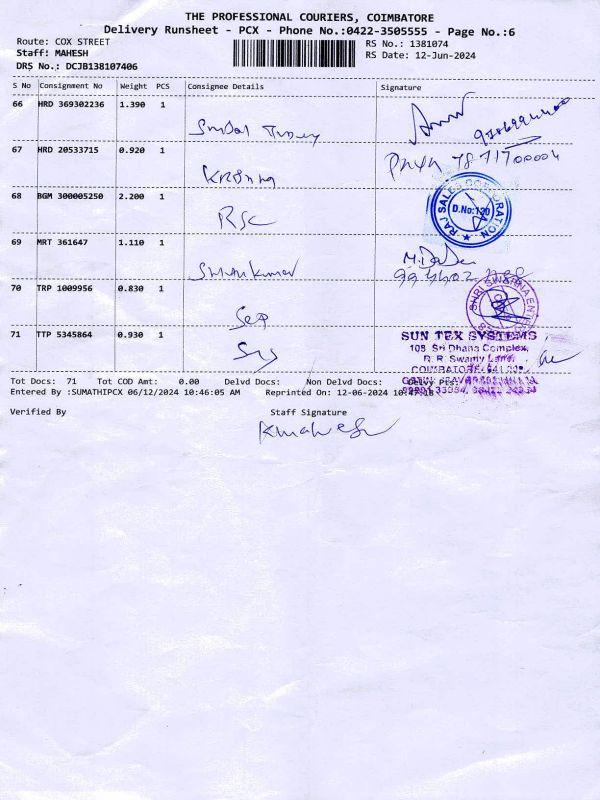 THE PROFESSIONAL COURIERS, COIMBATORE
Delivery Runsheet - PCX - Phone No.:0422-3505555 - Page No.:6
Route: COX STREET
RS No.: 1381074
Staff: MAHESH
RS Date: 12-Jun-2024
DRS No.: DCJB138107406
S No Consignment No Weight PCS Consignee Details Signature
66 HRD 369302236 1.390 1
67 HRD 20533715 0.920 1
Priya 7871700004
Krishna
68 BGM 300005250 2.200 1
RSC
RAJ SALES CORPORATION
D.No:130
69 MRT 361647 1.110 1
Sivakumar
70 TRP 1009956 0.830 1
SHRI SWARNA
71 TTP 5345864 0.930 1
SUN TEX SYSTEMS
108, Sri Dhana Complex,
R. R. Swamy
COIMBATORE
Tot Docs: 71 Tot COD Amt: 0.00 Delvd Docs: Non Delvd Docs: Delvy Pts:
Entered By :SUMATHIPCX 06/12/2024 10:46:05 AM Reprinted On: 12-06-2024 10:47:18
Verified By Staff Signature
K.mahesh